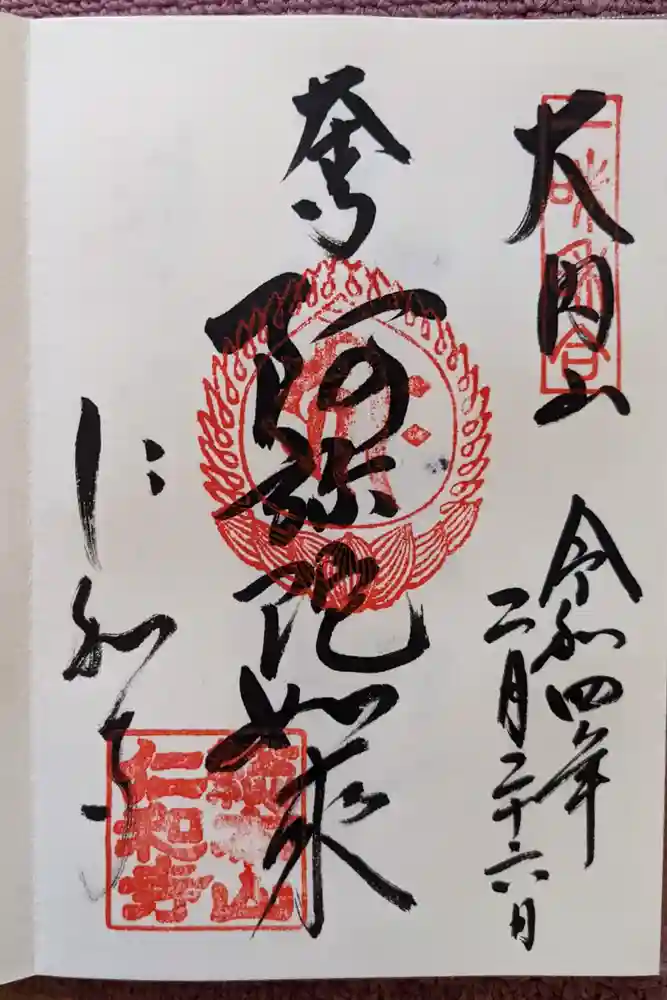 大内山
令和四年
二月二十六日
阿弥陀如来
仁和寺
総本山
仁和寺